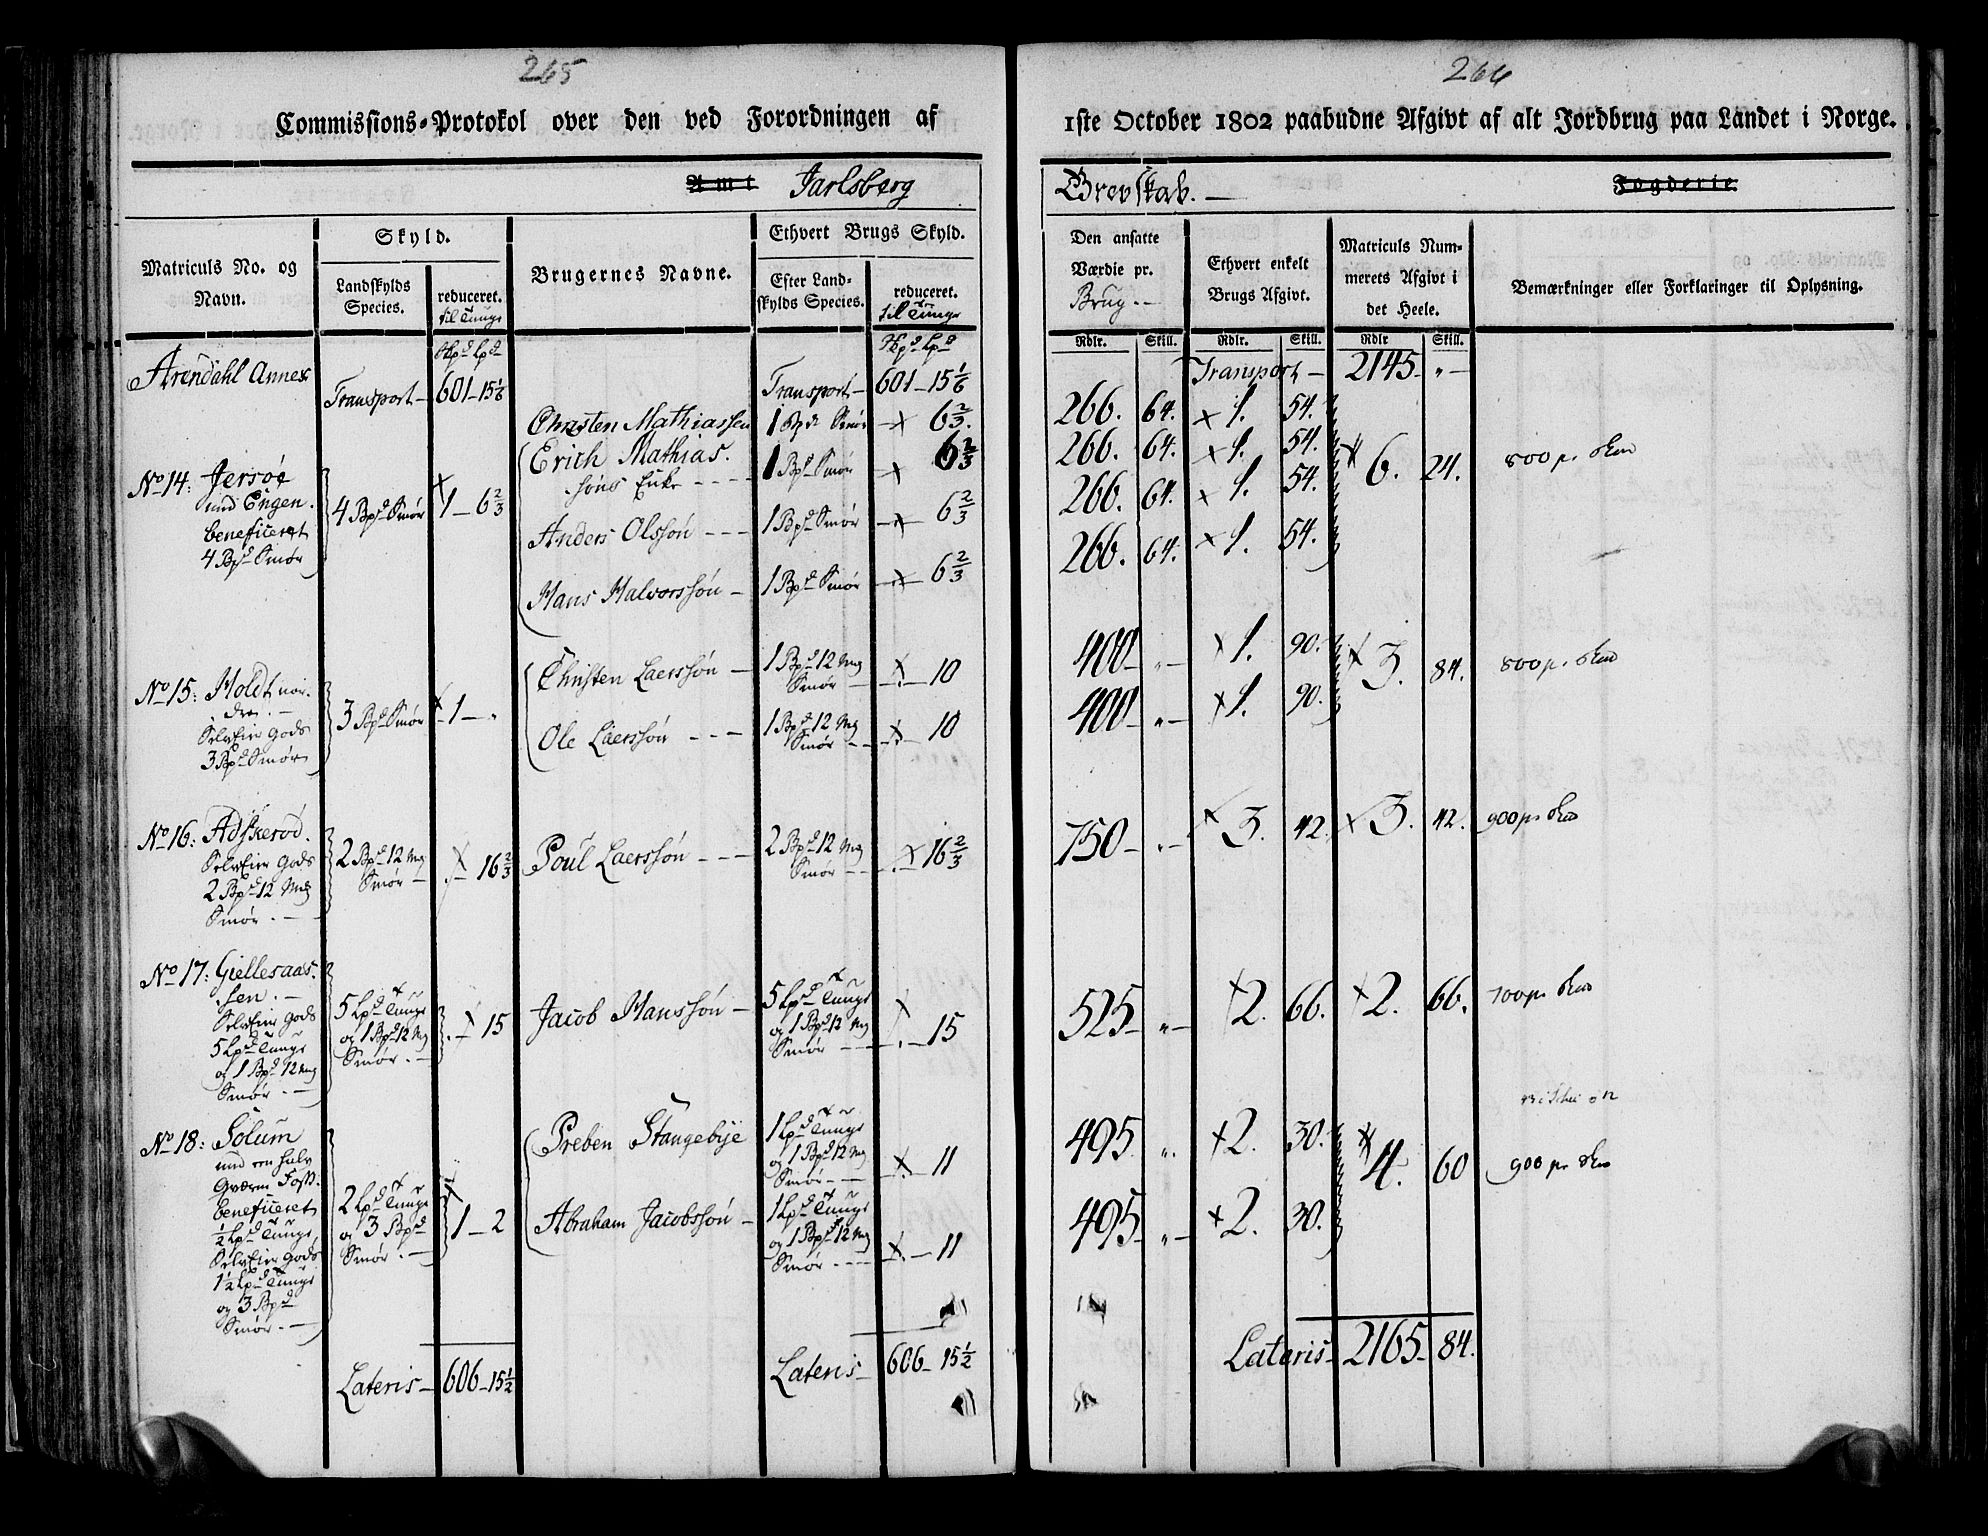 265
Commissions-Protokol over den ved Forordningen af
Amt Jarlsberg
Matriculs No. og Navn.
Skyld.
Landskylds Species.
reduceret. til Tunge
Brugernes Navne.
Ethvert Brugs Skyld.
Efter Landskylds Species.
reduceret. til Tunge
Arendahl Annex
Transport — 601 — 15 1/6
Transport — 601 — 15 1/6
Christen Mathiassen 1 Bpd Smør — 6 2/3
No 14: Jersøe
und Engen.
beneficeret
4 Bpd Smør
4 Bpd Smør 1 — 6 2/3
Erich Mathias.
søns Enke - - - - 1 Bpd Smør — 6 2/3
Anders Olssøn - - - 1 Bpd Smør — 6 2/3
Hans Halvorssøn — 1 Bpd Smør — 6 2/3
No 15: Holdt nor.
dre. —
SelvEier Gods
3 Bpd Smør
3 Bpd Smør 1 — „
Christen Laerssøn — 1 Bpd 12 Mg Smør — 10
Ole Laerssøn - - - 1 Bpd 12 Mg Smør - - - 10
No 16: Adskerød.
SelvEier Gods
2 Bpd 12 Mg
Smør. —
2 Bpd 12 Mg Smør — 16 2/3
Poul Laerssøn - - - 2 Bpd 12 Mg Smør — 16 2/3
No 17: Giellesaas.
sen. —
SelvEier Gods
5 Lpd Tunge
og 1 Bpd 12 Mg
Smør. —
5 Lpd Tunge og 1 Bpd 12 Mg Smør. — 15
Jacob Hanssøn — 5 Lpd Tunge og 1 Bpd 12 Mg Smør — 15
No 18: Solum
und een halv
Qværn Foss.
beneficeret
1/2 Lpd Tunge
SelvEier Gods
1 1/2 Lpd Tunge
og 3 Bpd
Smør. —
2 Lpd Tunge og 3 Bpd Smør. — 1 — 2
Preben Stangebye 1 Lpd Tunge og 1 Bpd 12 Mg Smør. — 11
Abraham Jacobssøn — 1 Lpd Tunge og 1 Bpd 12 Mg Smør. - - - 11
Lateris — 606 — 15 1/2
Lateris — 606 — 15 1/2
266
1ste October 1802 paabudne Afgivt af alt Jordbrug paa Landet i Norge.
Grevskab. — Fogderie.
Den ansatte Værdie pr. Brug. —
Ethvert enkelt Brugs Afgivt.
Matriculs Nummerets Afgivt i det Heele.
Bemærkninger eller Forklaringer til Oplysning.
Rdlr. Skill. Rdlr. Skill. Rdlr Skill.
Transport — 2145 — „ —
266. 64. 1. 54.
266. 64. 1. 54. 6. 24.
266. 64. 1. 54.
266. 64. 1. 54.
400 — „ — 1. 90. 3. 84.
400 — „ — 1. 90.
750 — „ — 3. 42. 3. 42.
525 — „ — 2. 66. 2. 66.
495 „ 2. 30. 4. 60
495 — „ — 2. 30.
Lateris — 2165 — 84.